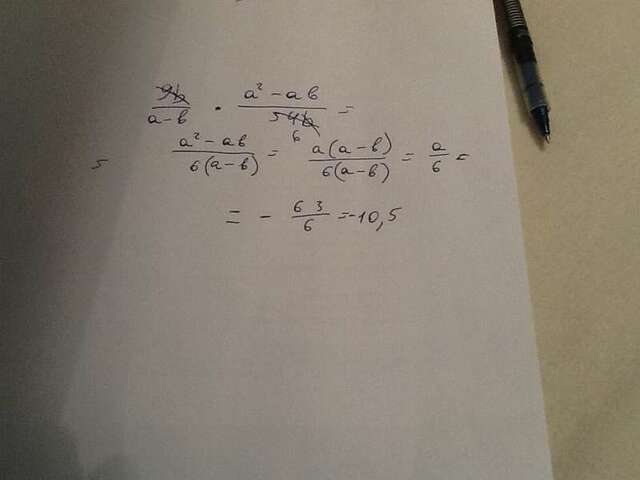 9b/(a-b) · (a²-ab)/(54b) =
6
5 (a²-ab)/(6(a-b)) = (a(a-b))/(6(a-b)) = a/6 =
= - 63/6 = -10,5